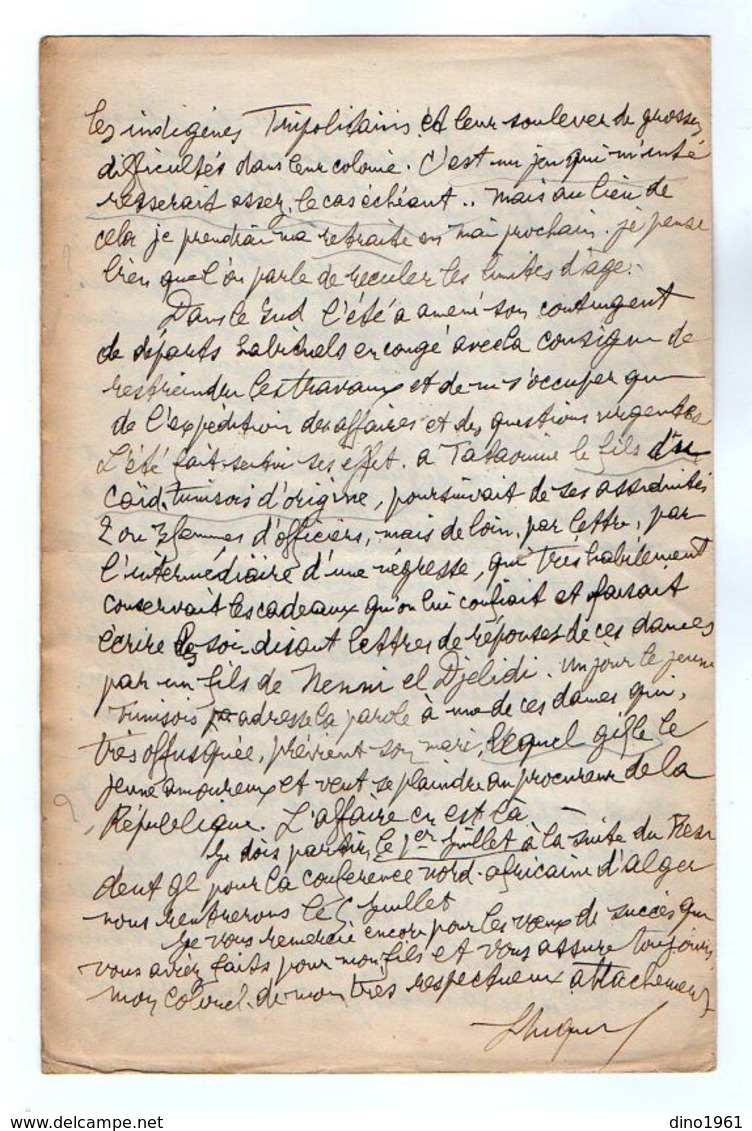 les indigènes Tripolitains et leur soulever de grosses
difficultés dans leur colonie. C'est un jeu qui m'inté
resserait assez, le cas échéant .. mais au lieu de
cela je prendrai ma retraite en mai prochain. je pense
bien que l'on parle de reculer les limites d'âge.
Dans le Sud l'été a amené son contingent
de départs habituels en congé avec la consigne de
restreindre les travaux et de ne s'occuper que
de l'expédition des affaires et des questions urgentes
L'été fait sentir ses effet. a Tataouine le fils du
caïd, tunisois d'origine, poursuivait de ses assiduités
2 ou 3 femmes d'officiers, mais de loin, par lettre, par
l'intermédiaire d'une négresse, qui très habilement
conservait les cadeaux qu'on lui confiait et faisait
écrire les soi-disant lettres de réponses de ces dames
par un fils de Nenni el Djelidi. Un jour le jeune
Tunisois adresse la parole à une de ces dames qui,
très offusquée, prévient son mari, lequel gifle le
jeune amoureux et veut se plaindre au procureur de la
République. L'affaire en est là.
Je dois partir, le 1er Juillet à la suite du Resi
dent gl pour la conférence nord-africaine d'alger
nous rentrerons le 5 Juillet
Je vous remercie encore pour les vœux de succès que
vous aviez faits pour mon fils et vous assure toujours,
mon Colonel, de mon très respectueux attachement
dino1961